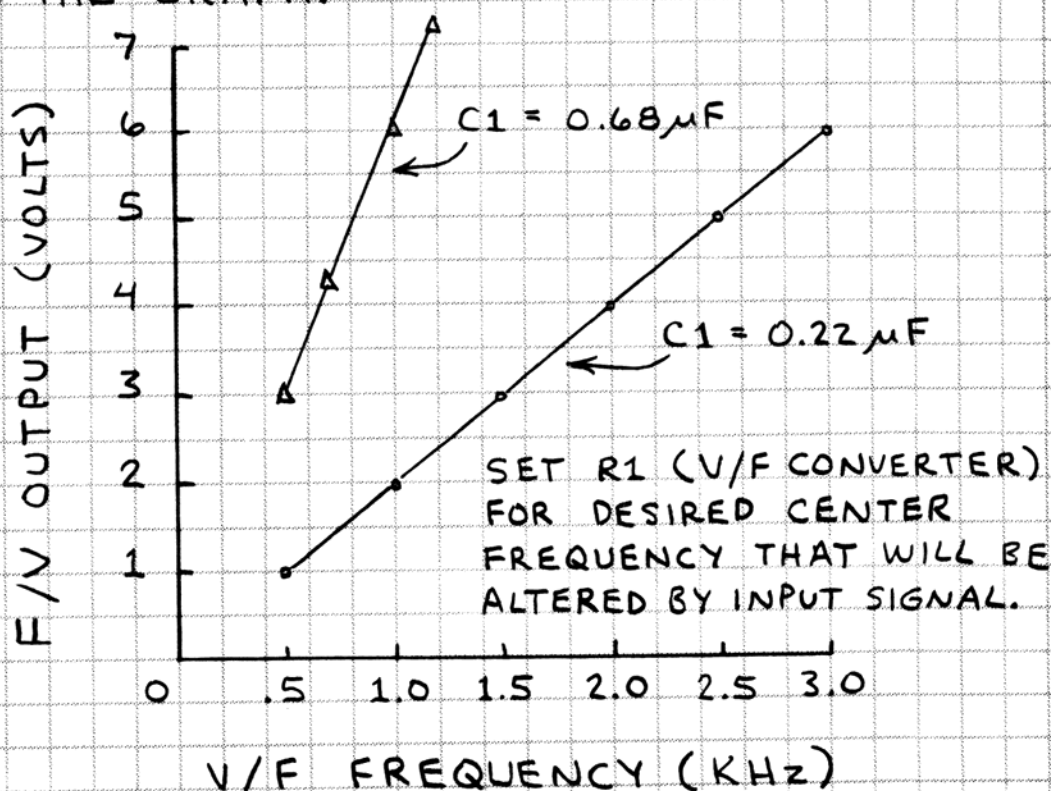 THE GRAPH.
7
6
5
4
3
2
1
F/V OUTPUT (VOLTS)
C1 = 0.68 µF
C1 = 0.22 µF
SET R1 (V/F CONVERTER)
FOR DESIRED CENTER
FREQUENCY THAT WILL BE
ALTERED BY INPUT SIGNAL.
0 .5 1.0 1.5 2.0 2.5 3.0
V/F FREQUENCY (KHz)